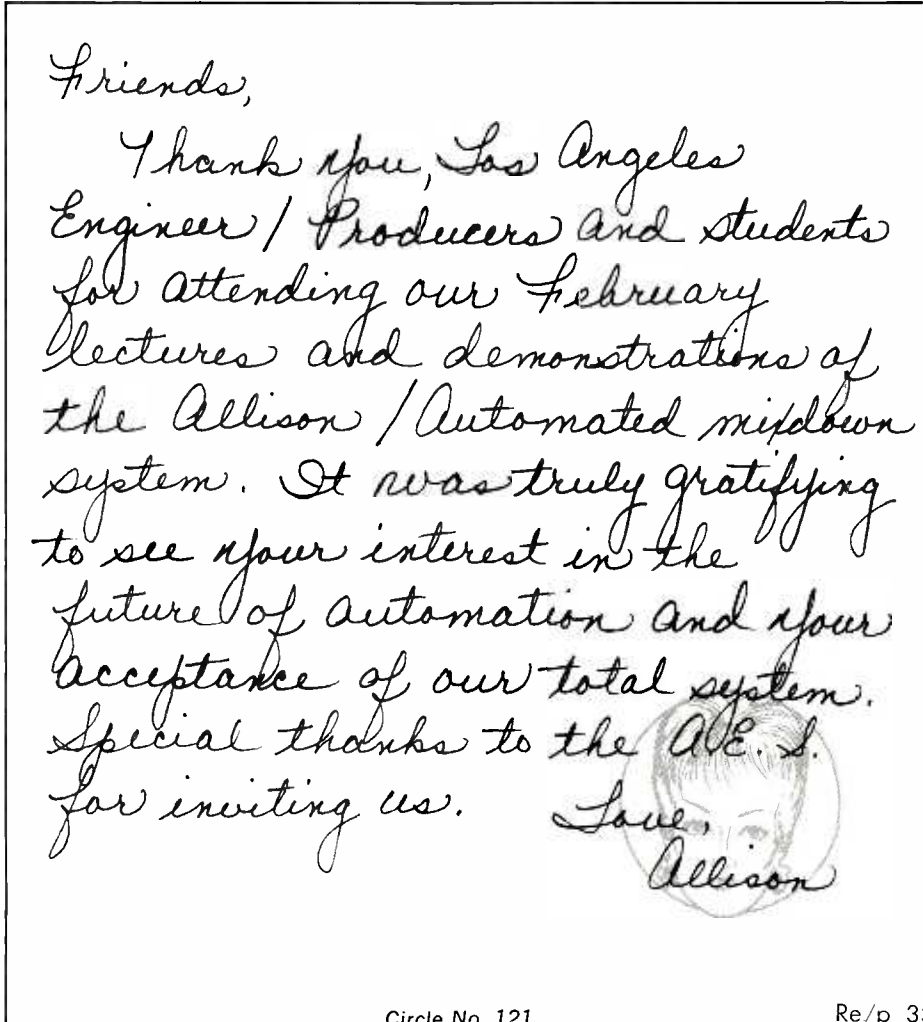 Friends,
Thank you, Los Angeles
Engineer / Producers and students
for attending our February
lectures and demonstrations of
the Allison / Automated mixdown
system. It was truly gratifying
to see your interest in the
future of automation and your
acceptance of our total system.
Special thanks to the A.E.S.
for inviting us.
Love,
Allison
Circle No. 121
Re/p